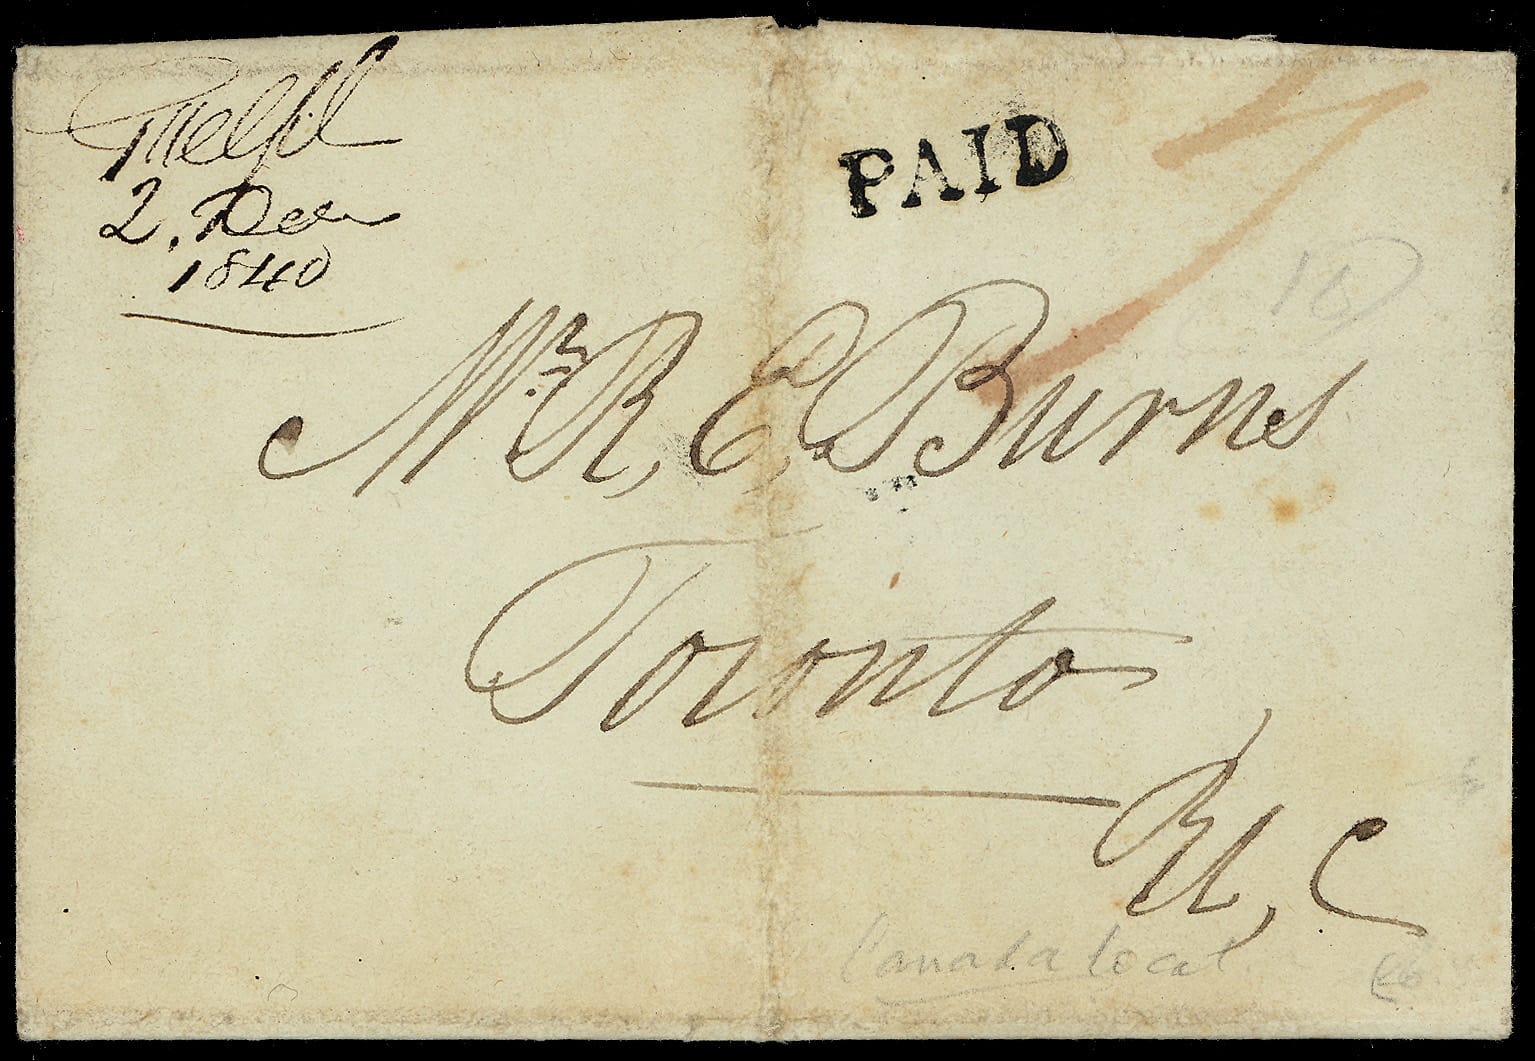 Guelph
2. Decr
1840
PAID
7
Mr. R, E, Burns
Toronto
U, C
Canada Local